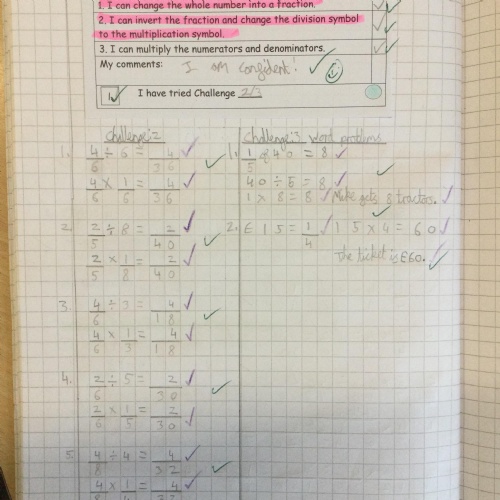 1. I can change the whole number into a fraction.
2. I can invert the fraction and change the division symbol
to the multiplication symbol.
3. I can multiply the numerators and denominators.
My comments: I am confident!
1 I have tried Challenge 2/3
Challenge: 2
1. 4/6 ÷ 6 = 4/36
4/6 × 1/6 = 4/36
2. 2/5 ÷ 8 = 2/40
2/5 × 1/8 = 2/40
3. 4/6 ÷ 3 = 4/18
4/6 × 1/3 = 4/18
4. 2/6 ÷ 5 = 2/30
2/6 × 1/5 = 2/30
5. 4/8 ÷ 4 = 4/32
4/8 × 1/4 = 4/32
Challenge: 3 word problems
1. 1/5 of 40 = 8
40 ÷ 5 = 8
1 × 8 = 8 Mike gets 8 tractors.
2. £15 = 1/4 15 × 4 = 60
The ticket is £60.